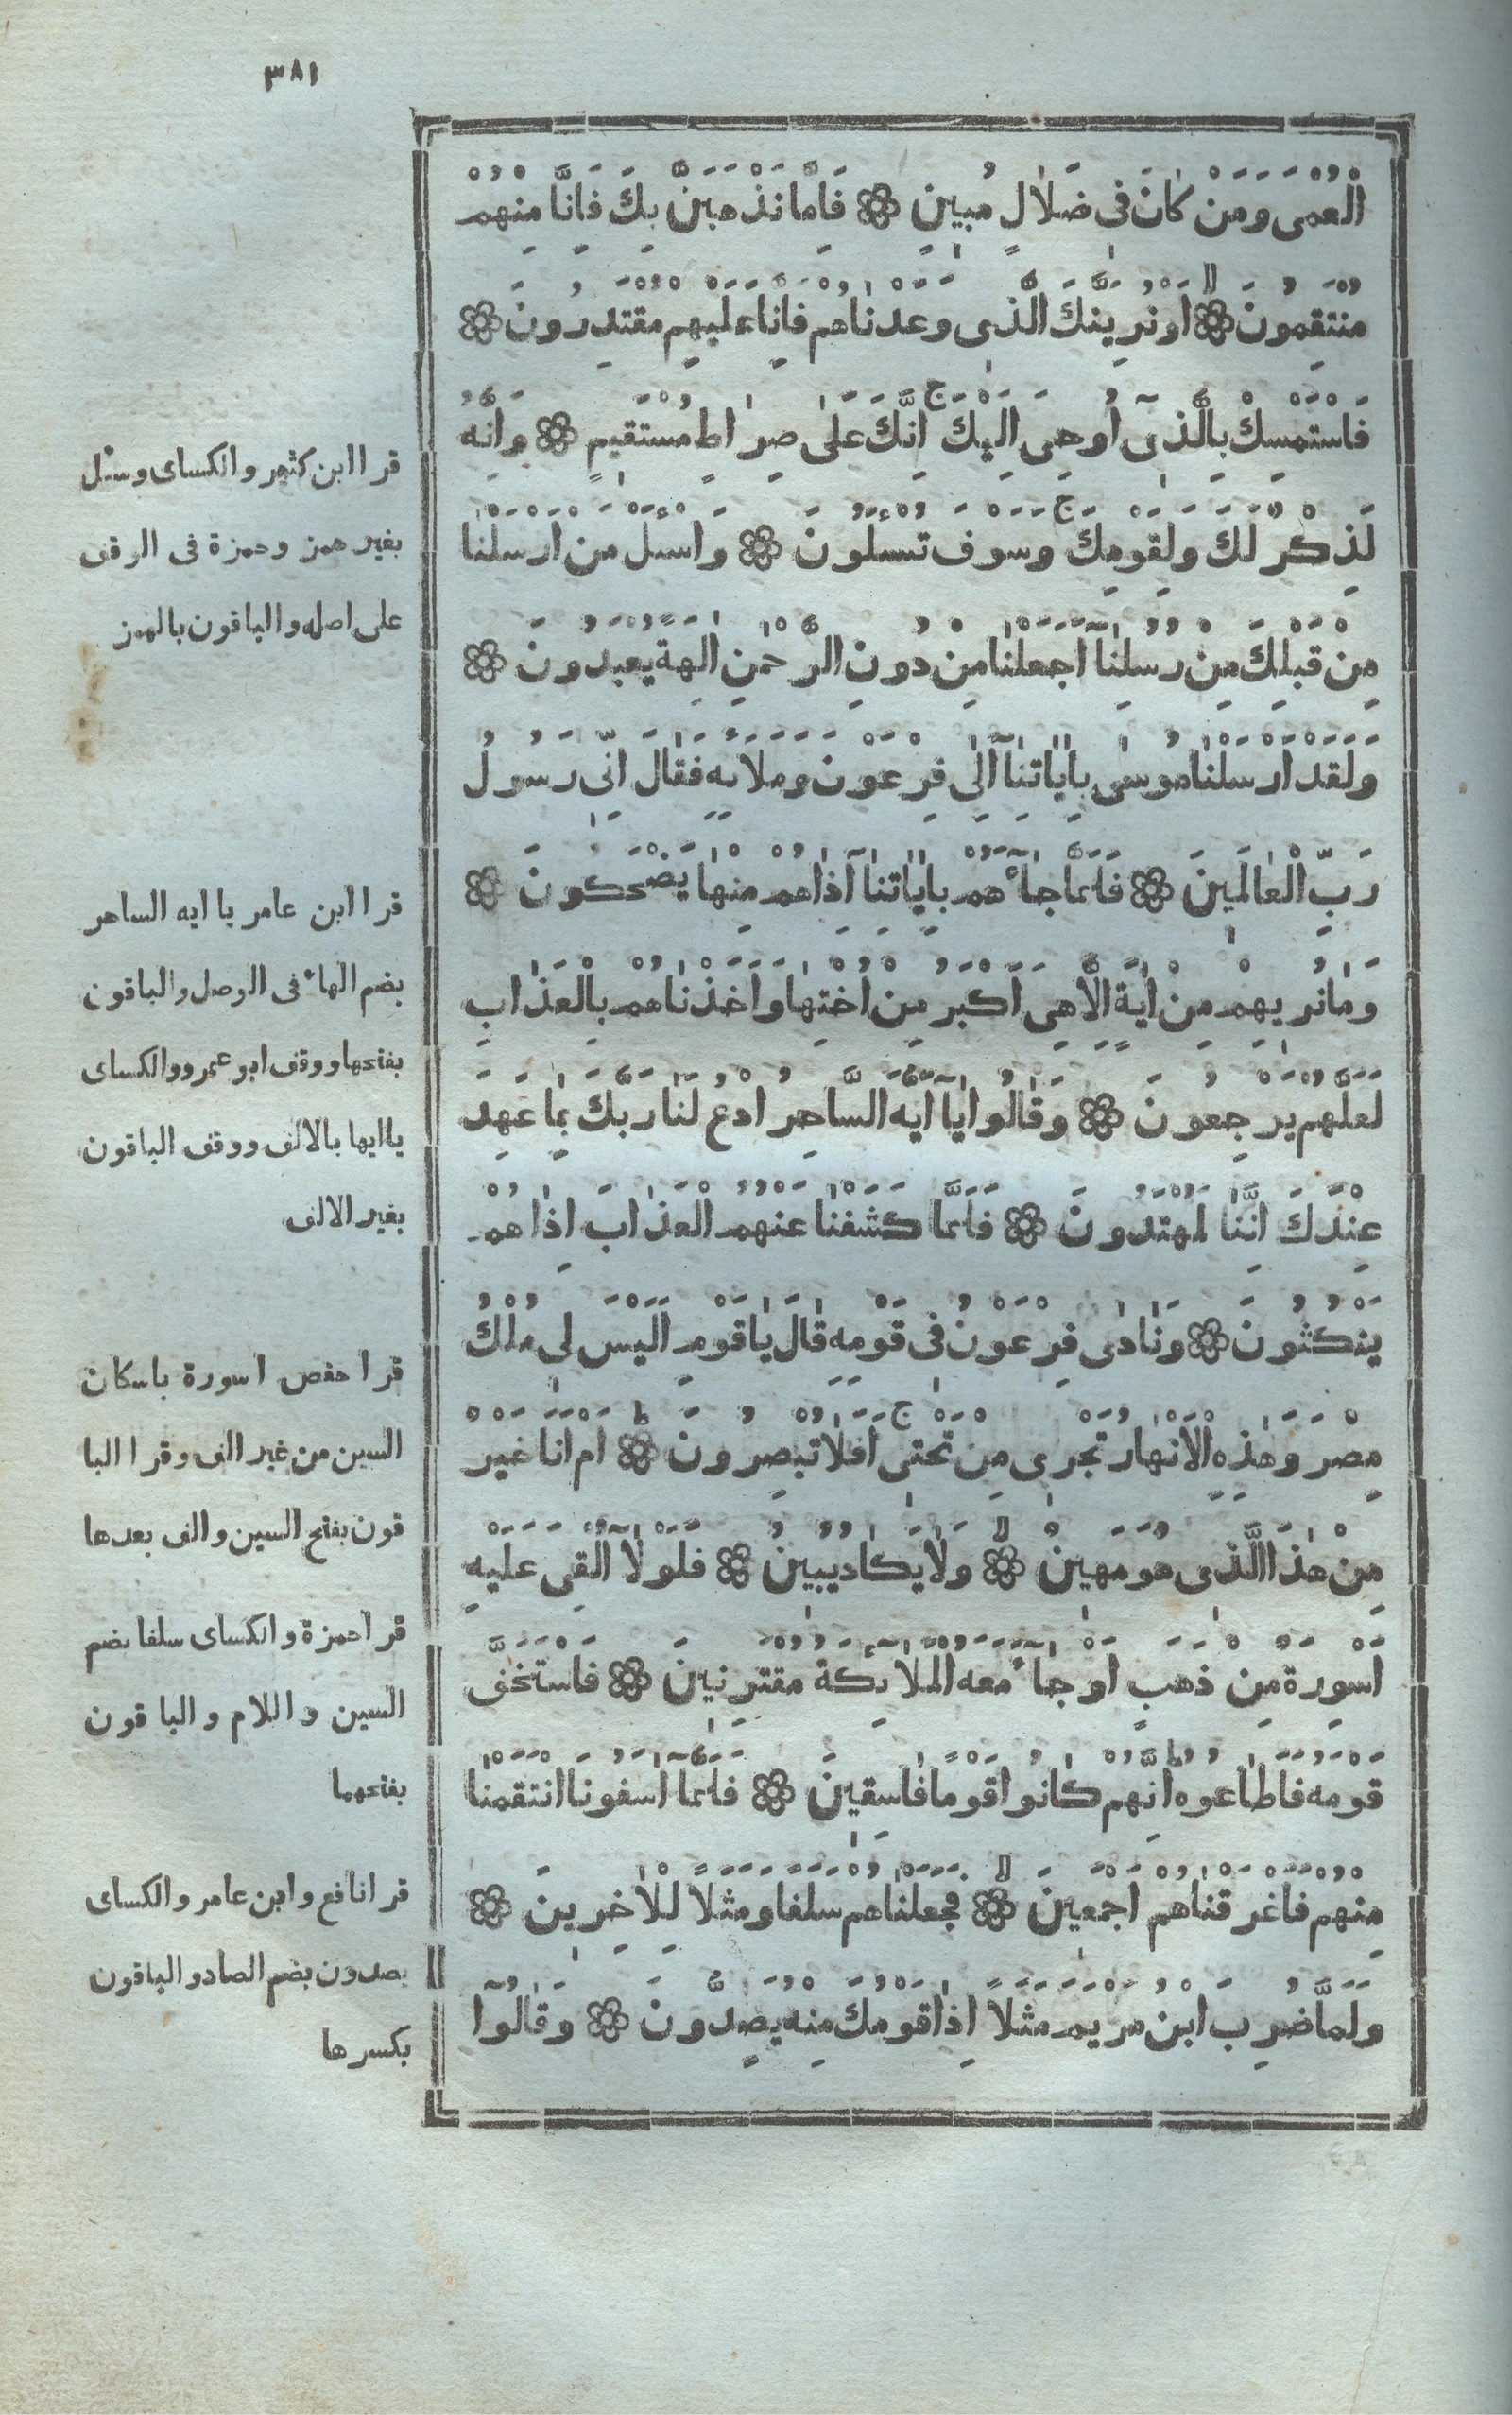 ٣٨١
الْعُمْىَ وَمَنْ كَانَ فِى ضَلَالٍ مُبِينٍ ۞ فَاِمَّا نَذْهَبَنَّ بِكَ فَاِنَّا مِنْهُمْ
مُنْتَقِمُونَ ۞ اَوْ نُرِيَنَّكَ الَّذِى وَعَدْنَاهُمْ فَاِنَّا عَلَيْهِمْ مُقْتَدِرُونَ ۞
فَاسْتَمْسِكْ بِالَّذِىٓ اُوحِىَ اِلَيْكَ ج اِنَّكَ عَلٰى صِرَاطٍ مُسْتَقِيمٍ ۞ وَاِنَّهُ
لَذِكْرٌ لَكَ وَلِقَوْمِكَ ج وَسَوْفَ تُسْـَٔلُونَ ۞ وَاسْـَٔلْ مَنْ اَرْسَلْنَا
مِنْ قَبْلِكَ مِنْ رُسُلِنَآ اَجَعَلْنَا مِنْ دُونِ الرَّحْمٰنِ اٰلِهَةً يُعْبَدُونَ ۞
وَلَقَدْ اَرْسَلْنَا مُوسٰى بِاٰيَاتِنَآ اِلٰى فِرْعَوْنَ وَمَلَائِهِ فَقَالَ اِنِّى رَسُولُ
رَبِّ الْعَالَمِينَ ۞ فَلَمَّا جَآءَهُمْ بِاٰيَاتِنَآ اِذَا هُمْ مِنْهَا يَضْحَكُونَ ۞
وَمَا نُرِيهِمْ مِنْ اٰيَةٍ اِلَّا هِىَ اَكْبَرُ مِنْ اُخْتِهَا وَاَخَذْنَاهُمْ بِالْعَذَابِ
لَعَلَّهُمْ يَرْجِعُونَ ۞ وَقَالُوا يَآ اَيُّهَ السَّاحِرُ ادْعُ لَنَا رَبَّكَ بِمَا عَهِدَ
عِنْدَكَ اِنَّنَا لَمُهْتَدُونَ ۞ فَلَمَّا كَشَفْنَا عَنْهُمُ الْعَذَابَ اِذَا هُمْ
يَنْكُثُونَ ۞ وَنَادٰى فِرْعَوْنُ فِى قَوْمِهِ قَالَ يَا قَوْمِ اَلَيْسَ لِى مُلْكُ
مِصْرَ وَهٰذِهِ الْاَنْهَارُ تَجْرِى مِنْ تَحْتِى ج اَفَلَا تُبْصِرُونَ ط ۞ اَمْ اَنَا خَيْرٌ
مِنْ هٰذَا الَّذِى هُوَ مَهِينٌ لا ۞ وَلَا يَكَادُ يُبِينُ ۞ فَلَوْلَآ اُلْقِىَ عَلَيْهِ
اَسْوِرَةٌ مِنْ ذَهَبٍ اَوْ جَآءَ مَعَهُ الْمَلَآئِكَةُ مُقْتَرِنِينَ ۞ فَاسْتَخَفَّ
قَوْمَهُ فَاَطَاعُوهُ ط اِنَّهُمْ كَانُوا قَوْمًا فَاسِقِينَ ۞ فَلَمَّآ اٰسَفُونَا انْتَقَمْنَا
مِنْهُمْ فَاَغْرَقْنَاهُمْ اَجْمَعِينَ لا ۞ فَجَعَلْنَاهُمْ سَلَفًا وَمَثَلًا لِلْاٰخِرِينَ ۞
وَلَمَّا ضُرِبَ ابْنُ مَرْيَمَ مَثَلًا اِذَا قَوْمُكَ مِنْهُ يَصِدُّونَ ۞ وَقَالُوٓا
قرا ابن كثير والكساى وسئل
بغير همز وحمزة فى الوقف
على اصله والباقون بالهمز
قرا ابن عامر يا ايه الساحر
بضم الهاء فى الوصل والباقون
بفتحها ووقف ابو عمرو والكساى
يا ايها بالالف ووقف الباقون
بغير الالف
قرا حفص اسورة باسكان
السين من غير الف وقرا البا
قون بفتح السين والف بعدها
قرا حمزة والكساى سلفا بضم
السين واللام والباقون
بفتحهما
قرا نافع وابن عامر والكساى
يصدون بضم الصاد والباقون
بكسرها